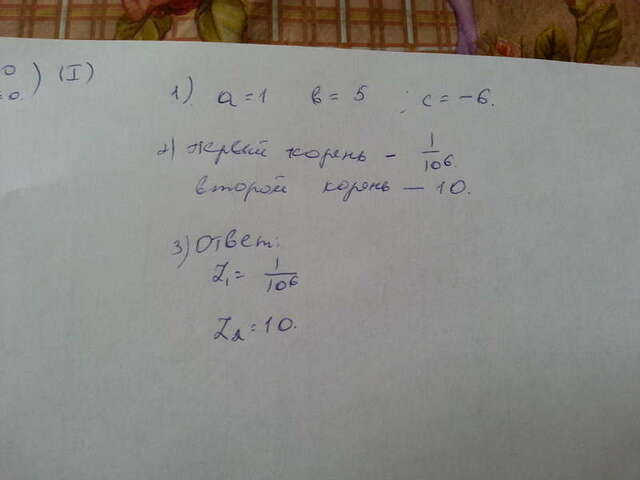 0 ) (I)
=0.
1) a=1 в=5 ; c=-6.
2) первый корень - 1/10⁶.
второй корень - 10.
3) Ответ:
Z₁= 1/10⁶
Z₂=10.